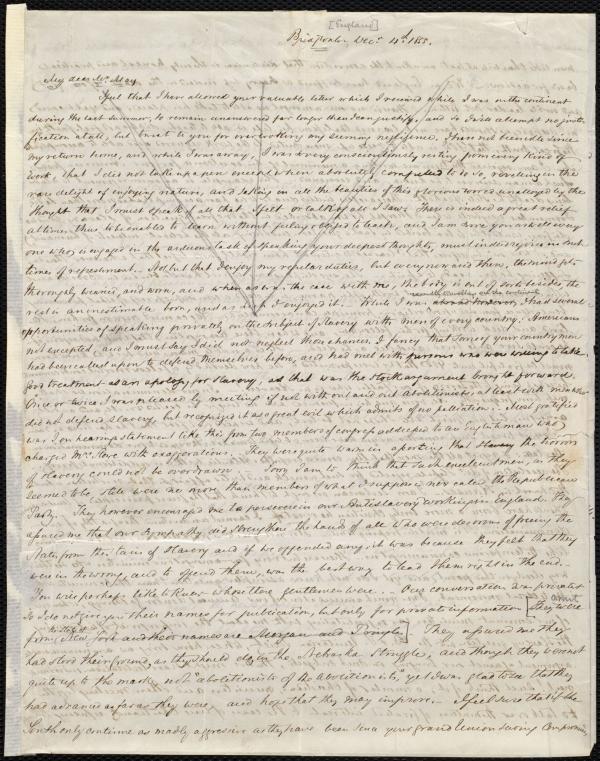 [England]
Bridgwater Decr. 4th 185
My dear Mr. May
I feel that I have allowed your valuable letter which I received while I was on the continent
during the last summer, to remain unanswered far longer than I can justify, and so I will attempt no justi-
fication at all, but trust to you for overlooking my seeming negligence. I have not been idle since
my return home, and while I was away, I was so very conscientiously resting from every kind of
work, that I did not take up a pen except when absolutely compelled to do so, revelling in the
rare delight of enjoying nature, and taking in all the beauties of this glorious world unalloyed by the
thought that I must speak of all that I felt or talk of all I saw. There is indeed a great relief
at times thus to be enabled to learn without feeling obliged to teach, and I am sure you as well as any
one who is engaged in the arduous task of speaking your deepest thoughts, must indeed rejoice in such
times of refreshment. Not but that I enjoy my regular duties, but every now and then, the mind gets
thoroughly wearied, and worn, and when as was the case with me, the body is out of sorts besides the
rest is an inestimable boon, and as such I enjoyed it. While I was recently travelling on the continent I had several
opportunities of speaking privately on the subject of Slavery with men of every country, Americans
not excepted, and I must say I did not neglect those chances. I fancy that some of your countrymen
had been called upon to defend themselves before, and had met with persons who were willing to take
good treatment as an apology for slavery, as that was the stock argument brought forward.
Once or twice I was pleased by meeting if not with out and out Abolitionists, at least with men who
did not defend slavery, but recognized it as a great evil which admits of no palliation. Most gratified
was I on hearing a statement like this from two members of congress addressed to an Englishman who
charged Mrs. Stowe with exaggerations. They were quite warm in asserting that the horrors
of slavery could not be overdrawn. Sorry I am to think that such excellent men, as they
seemed to be, still were no more than members of what I suppose is now called the Republican
Party. They however encouraged me to persevere in our Antislavery working in England. They
assured me that our sympathy did strengthen the hands of all who were desirous of freeing the
States from the stain of Slavery and if we offended any, it was because they felt that they
were in the wrong, and to offend them, was the best way to lead them right in the end.
You will perhaps like to know who these gentlemen were. Our conversation was private
so I do not give you their names for publication, but only for private information [they were
from the State of New York and their names are Morgan and Pringle] omit They assured me they
had stood their ground, as they should do, in the Nebraska Struggle, and though they were not
quite up to the mark, not "abolitionists of the abolitionists," yet I was glad to see that they
had advanced as far as they were, and hope that they may improve. I feel sure that if the
South only continue as madly aggressive as they have been since your grand Union saving Compromise